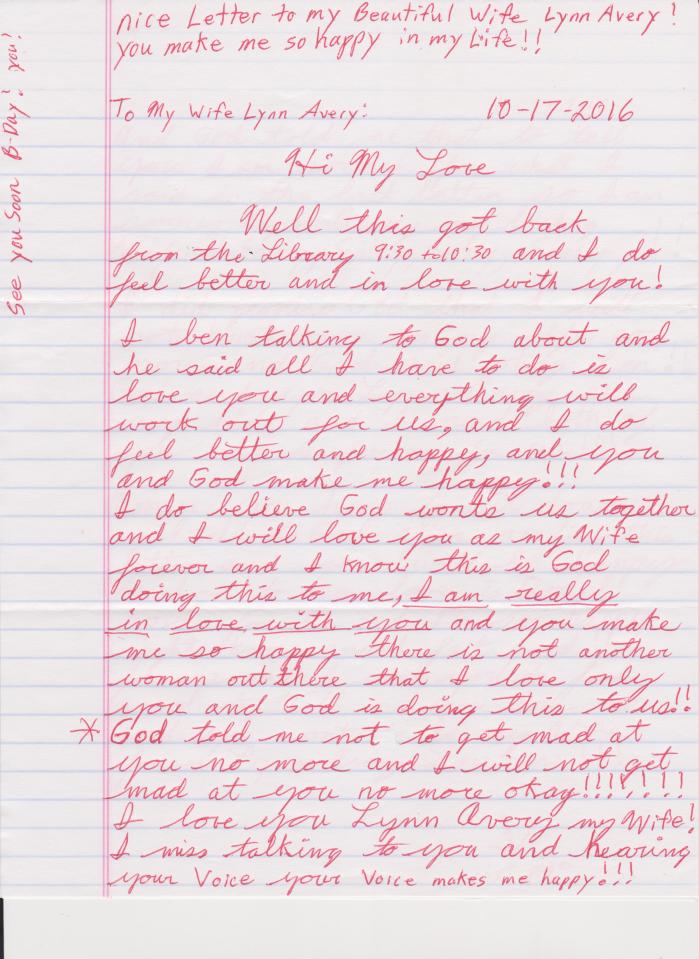 nice Letter to my Beautiful Wife Lynn Avery!
you make me so happy in my Life!!
See you Soon B-Day! you!
To My Wife Lynn Avery: 10-17-2016
Hi My Love
Well this got back
from the Library 9:30 to 10:30 and I do
feel better and in love with you!
I ben talking to God about and
he said all I have to do is
love you and everything will
work out for us, and I do
feel better and happy, and you
and God make me happy!!!
I do believe God wonts us together
and I will love you as my Wife
forever and I know this is God
doing this to me, I am really
in love with you and you make
me so happy there is not another
woman out there that I love only
you and God is doing this to us!!
* God told me not to get mad at
you no more and I will not get
mad at you no more okay!!!!!!!
I love you Lynn Avery my Wife!
I miss talking to you and hearing
your Voice your Voice makes me happy!!!